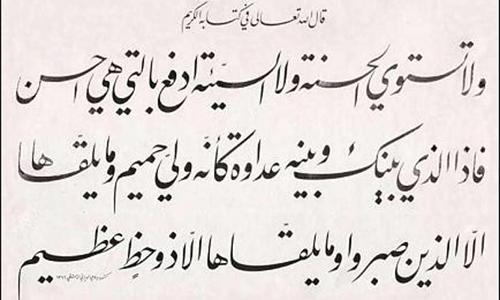 قال الله تعالى في كتابه الكريم
ولا تستوي الحسنة ولا السيئة ادفع بالتي هي احسن
فاذا الذي بينك وبينه عداوة كأنه ولي حميم وما يلقاها
الا الذين صبروا وما يلقاها الا ذو حظ عظيم